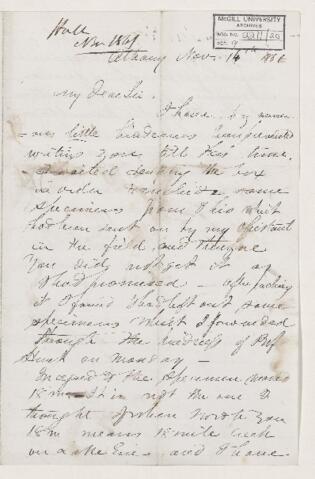 Hall
Nov 1861
McGILL UNIVERSITY
ARCHIVES
ACC. NO. 2211/20
REF. 9
Albany Nov. 14th 186
My Dear Sir
I have by numer-
ous little hindrances been prevented
writing you till this time.
I waited sending the box
in order to include some
specimens from Ohio which
had been sent on by my assistant
in the field and
You did not get it as
I had promised — After packing
it I found I had left out some
specimens which I forwarded
through the kindness of Prof
on Monday —
In regard to the specimen marked
18 m it is not the one I
thought of when I wrote you
18 m means 18 mile creek
on Lake Erie — and I have